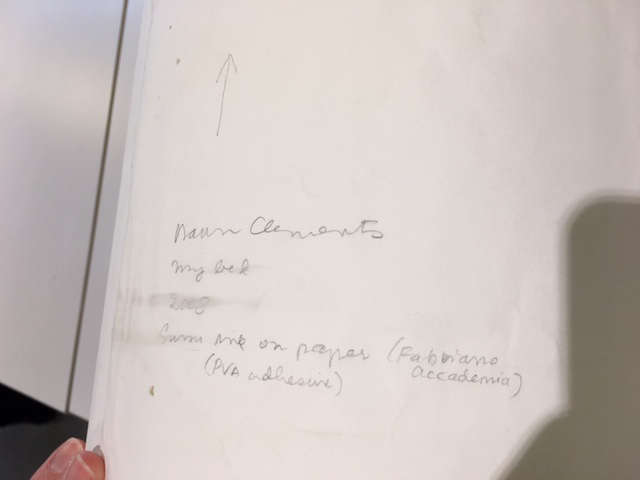 Dawn Clements
my bed
2008
Sumi ink on paper (Fabbiano
accademia)
(PVA adhesive)